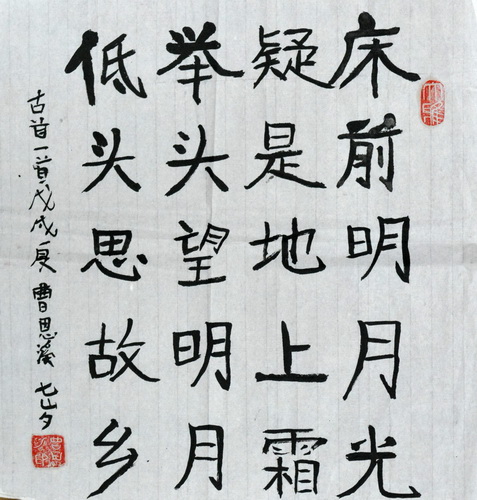 床前明月光
疑是地上霜
举头望明月
低头思故乡
古首一首戊戌夏曹思